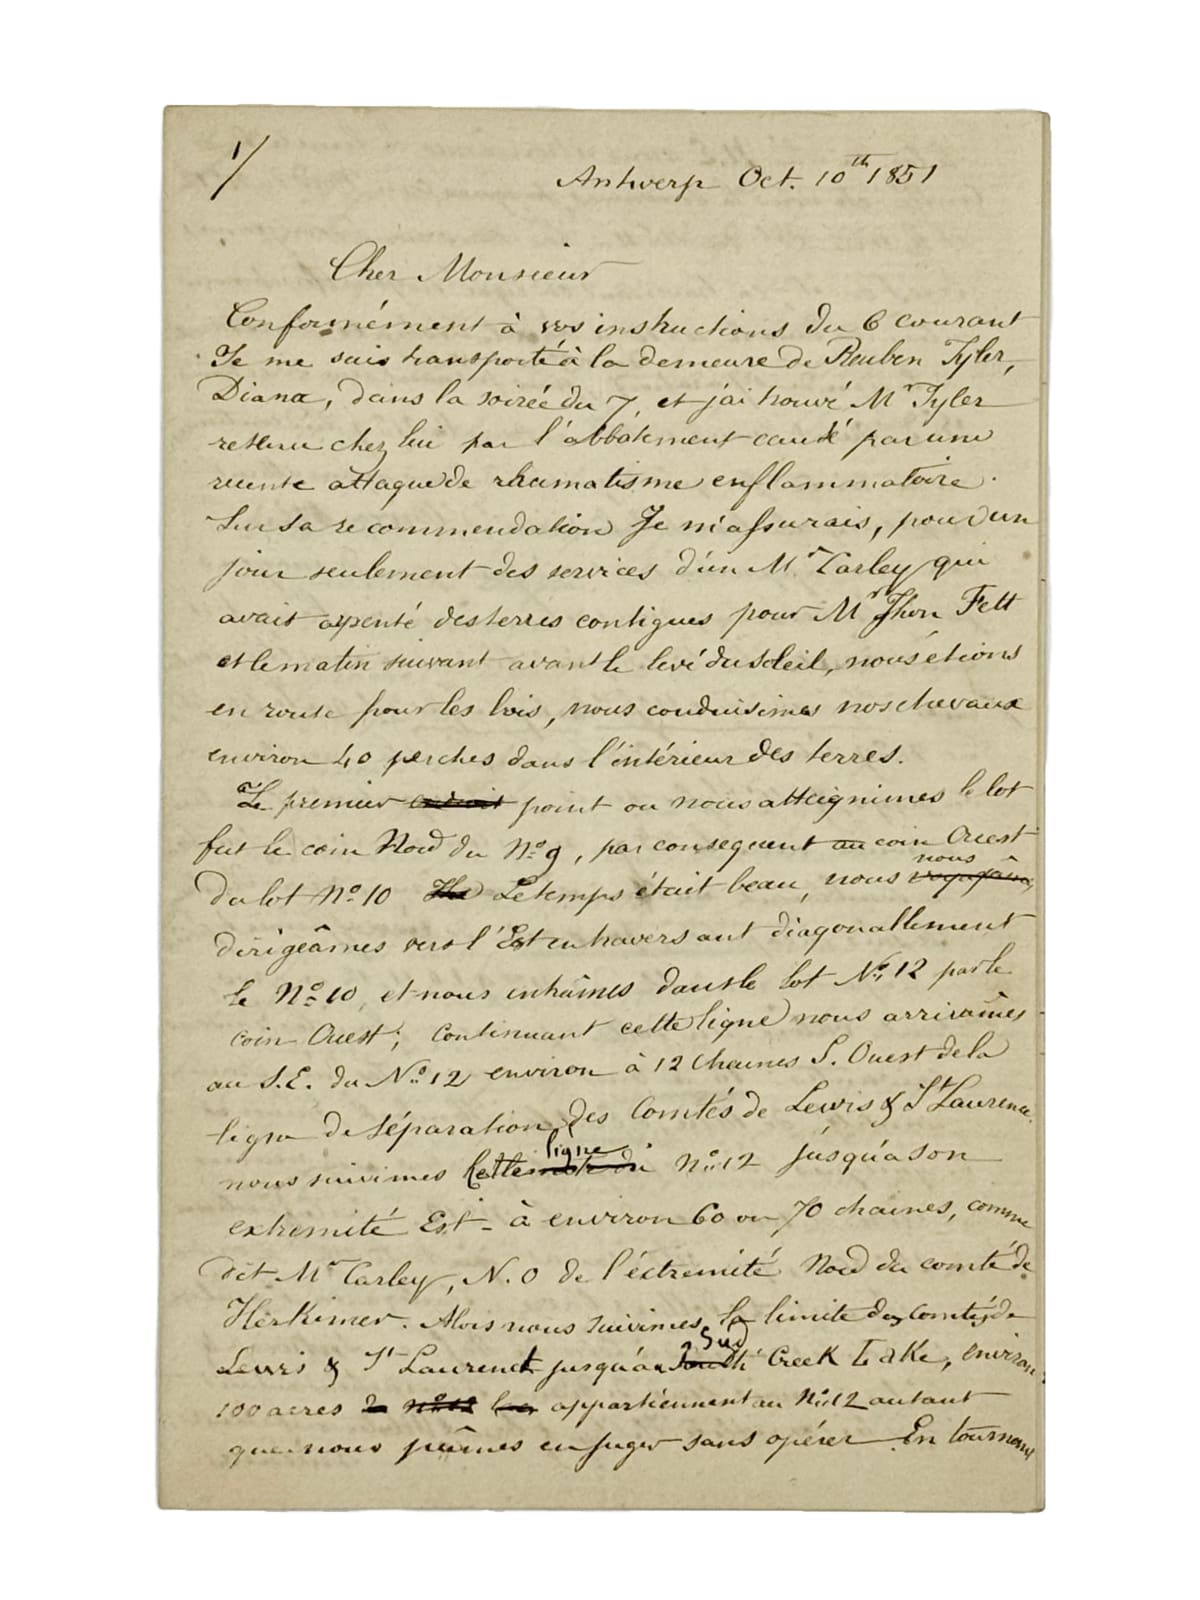 1/
Antwerp Oct. 10th 1851
Cher Monsieur
Conformément à vos instructions du 6 courant
Je me suis transporté à la demeure de Reuben Tyler,
Diana, dans la soirée du 7, et j'ai trouvé Mr Tyler
retenu chez lui par l'abbatement causé par une
recente attaque de rhumatisme enflammatoire.
Sur sa recommendation Je m'assurais, pour un
jour seulement des services d'un Mr Carley qui
avait arpenté des terres contigues pour Mr Jhon Felt
et le matin suivant avant le levé du soleil, nous étions
en route pour les bois, nous conduisimes nos chevaux
environ 40 perches dans l'intérieur des terres.
Le premier endroit point ou nous atteignimes le lot
fut le coin Nord du No 9, par consequent au coin Ouest
du lot No 10 The Le temps était beau, nous nous
dirigeâmes vers l'Est en traversant diagonallement
le No 10, et nous entrâmes dans le lot No 12 par le
coin Ouest; continuant cette ligne nous arrivâmes
au S.E. du No 12 environ à 12 chaines S. Ouest de la
ligne de séparation des Comtés de Lewis & St Laurence
nous suivimes cette ligne du No 12 jusqu'a son
extremité Est - à environ 60 ou 70 chaines, comme
dit Mr Carley, N.O de l'éxtremité Nord du comté de
Herkimer. Alors nous suivimes la limite des comtés de
Lewis & St Laurence jusqu'au South Sud Creek Lake, environ
100 acres de No 12 appartiennent au No 12 autant
que nous pûmes en juger sans opérer. En tournant